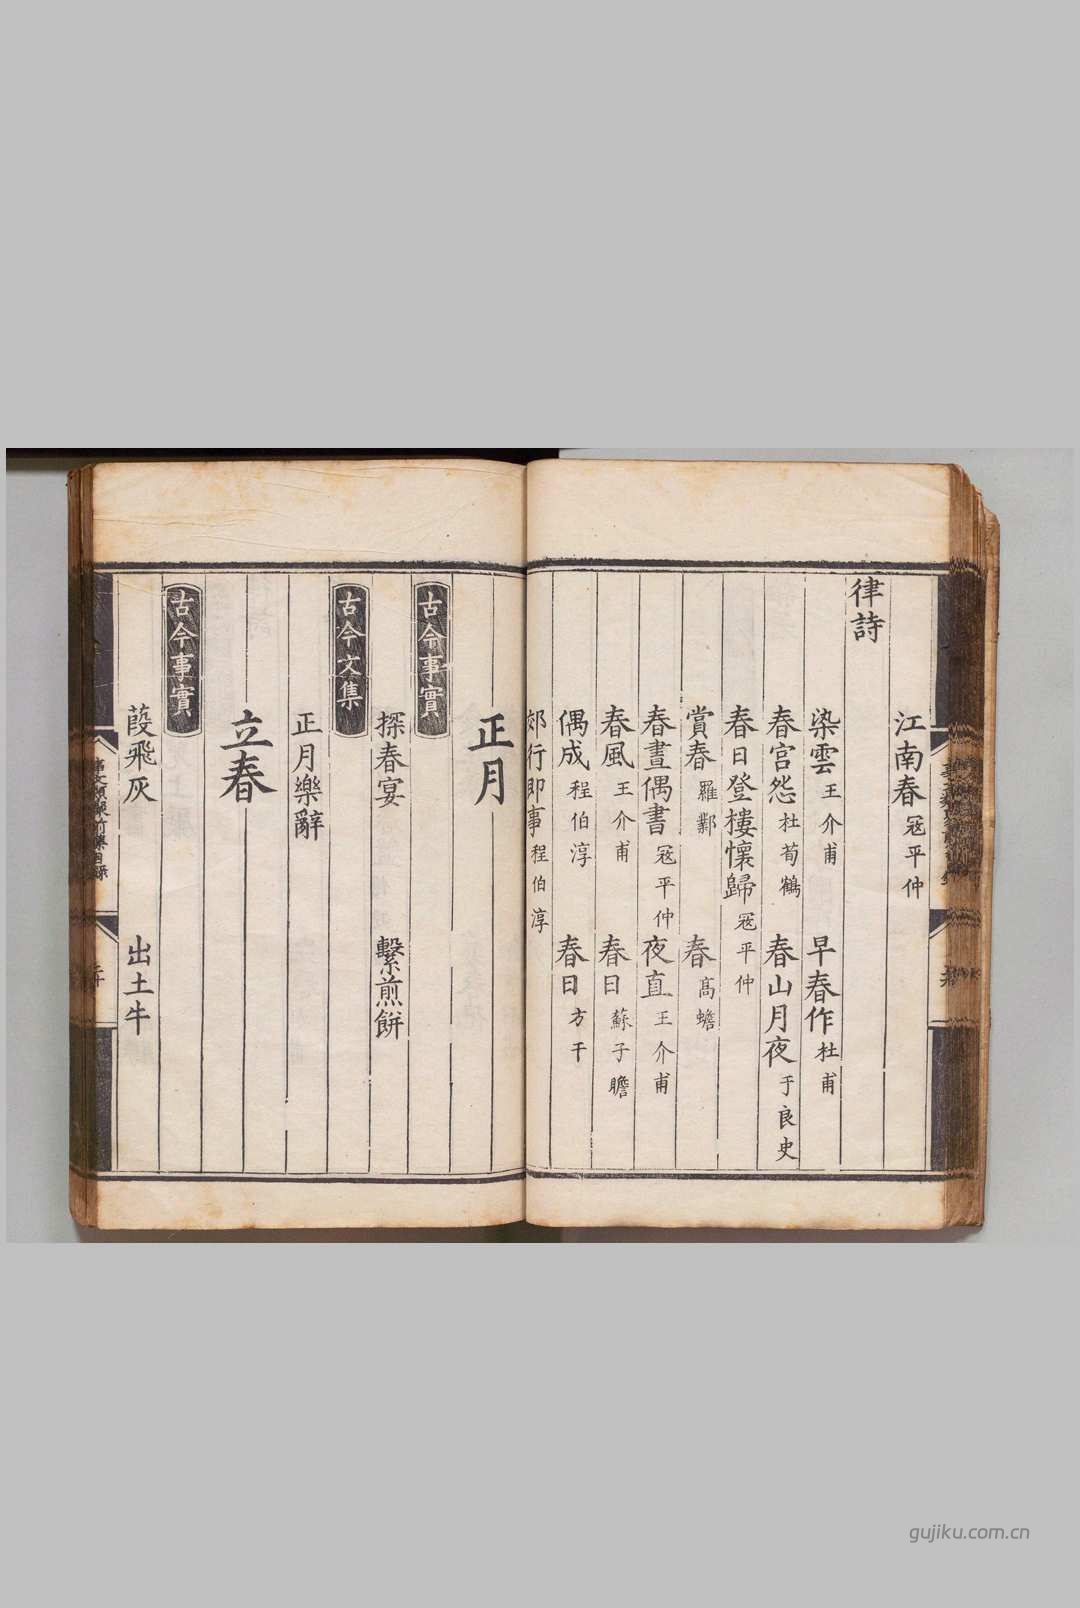 江南春 寇平仲
律詩
染雲 王介甫 早春作 杜甫
春宮怨 杜荀鶴 春山月夜 于良史
春日登樓懷歸 寇平仲
賞春 羅鄴 春 高蟾
春晝偶書 寇平仲 夜直 王介甫
春風 王介甫 春日 蘇子瞻
偶成 程伯淳 春日 方干
郊行即事 程伯淳
正月
古今事實
探春宴 繫煎餅
古今文集
正月樂辭
立春
古今事實
葭飛灰 出土牛
gujiku.com.cn